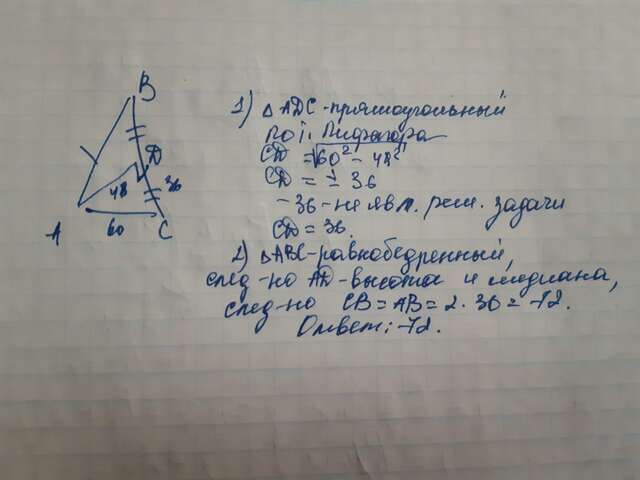 B
D
48
36
A
60
C
1) △ADC - прямоугольный
по т. Пифагора
CD = √60² - 48²
CD = ± 36
-36 - не явл. реш. задачи
CD = 36.
2) △ABC - равнобедренный,
след-но AD - высота и медиана,
след-но CB = AB = 2 · 36 = 72.
Ответ: 72.